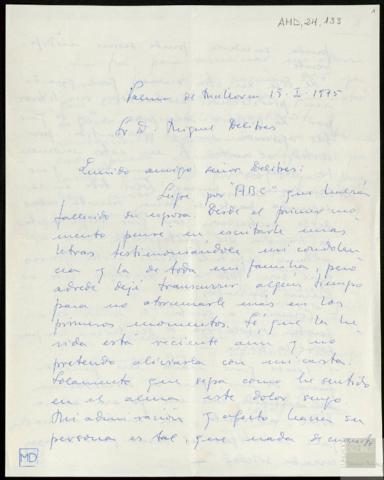 AMD, 24, 133
Palma de Mallorca 15-I-1975
Sr D. Miguel Delibes
Querido amigo señor Delibes:
Supe por "ABC" que había
fallecido su esposa. Desde el primer mo-
mento pensé en escribirle unas
letras testimoniándole mi condolen-
cia y la de toda mi familia, pero
adrede dejé transcurrir algún tiempo
para no abrumarle más en los
primeros momentos. Sé que la he-
rida está reciente aún y no
pretendo aliviarla con mi carta.
Solamente que sepa como he sentido
en el alma este dolor suyo.
Mi admiración y afecto hacia su
persona es tal, que nada de cuanto
MD